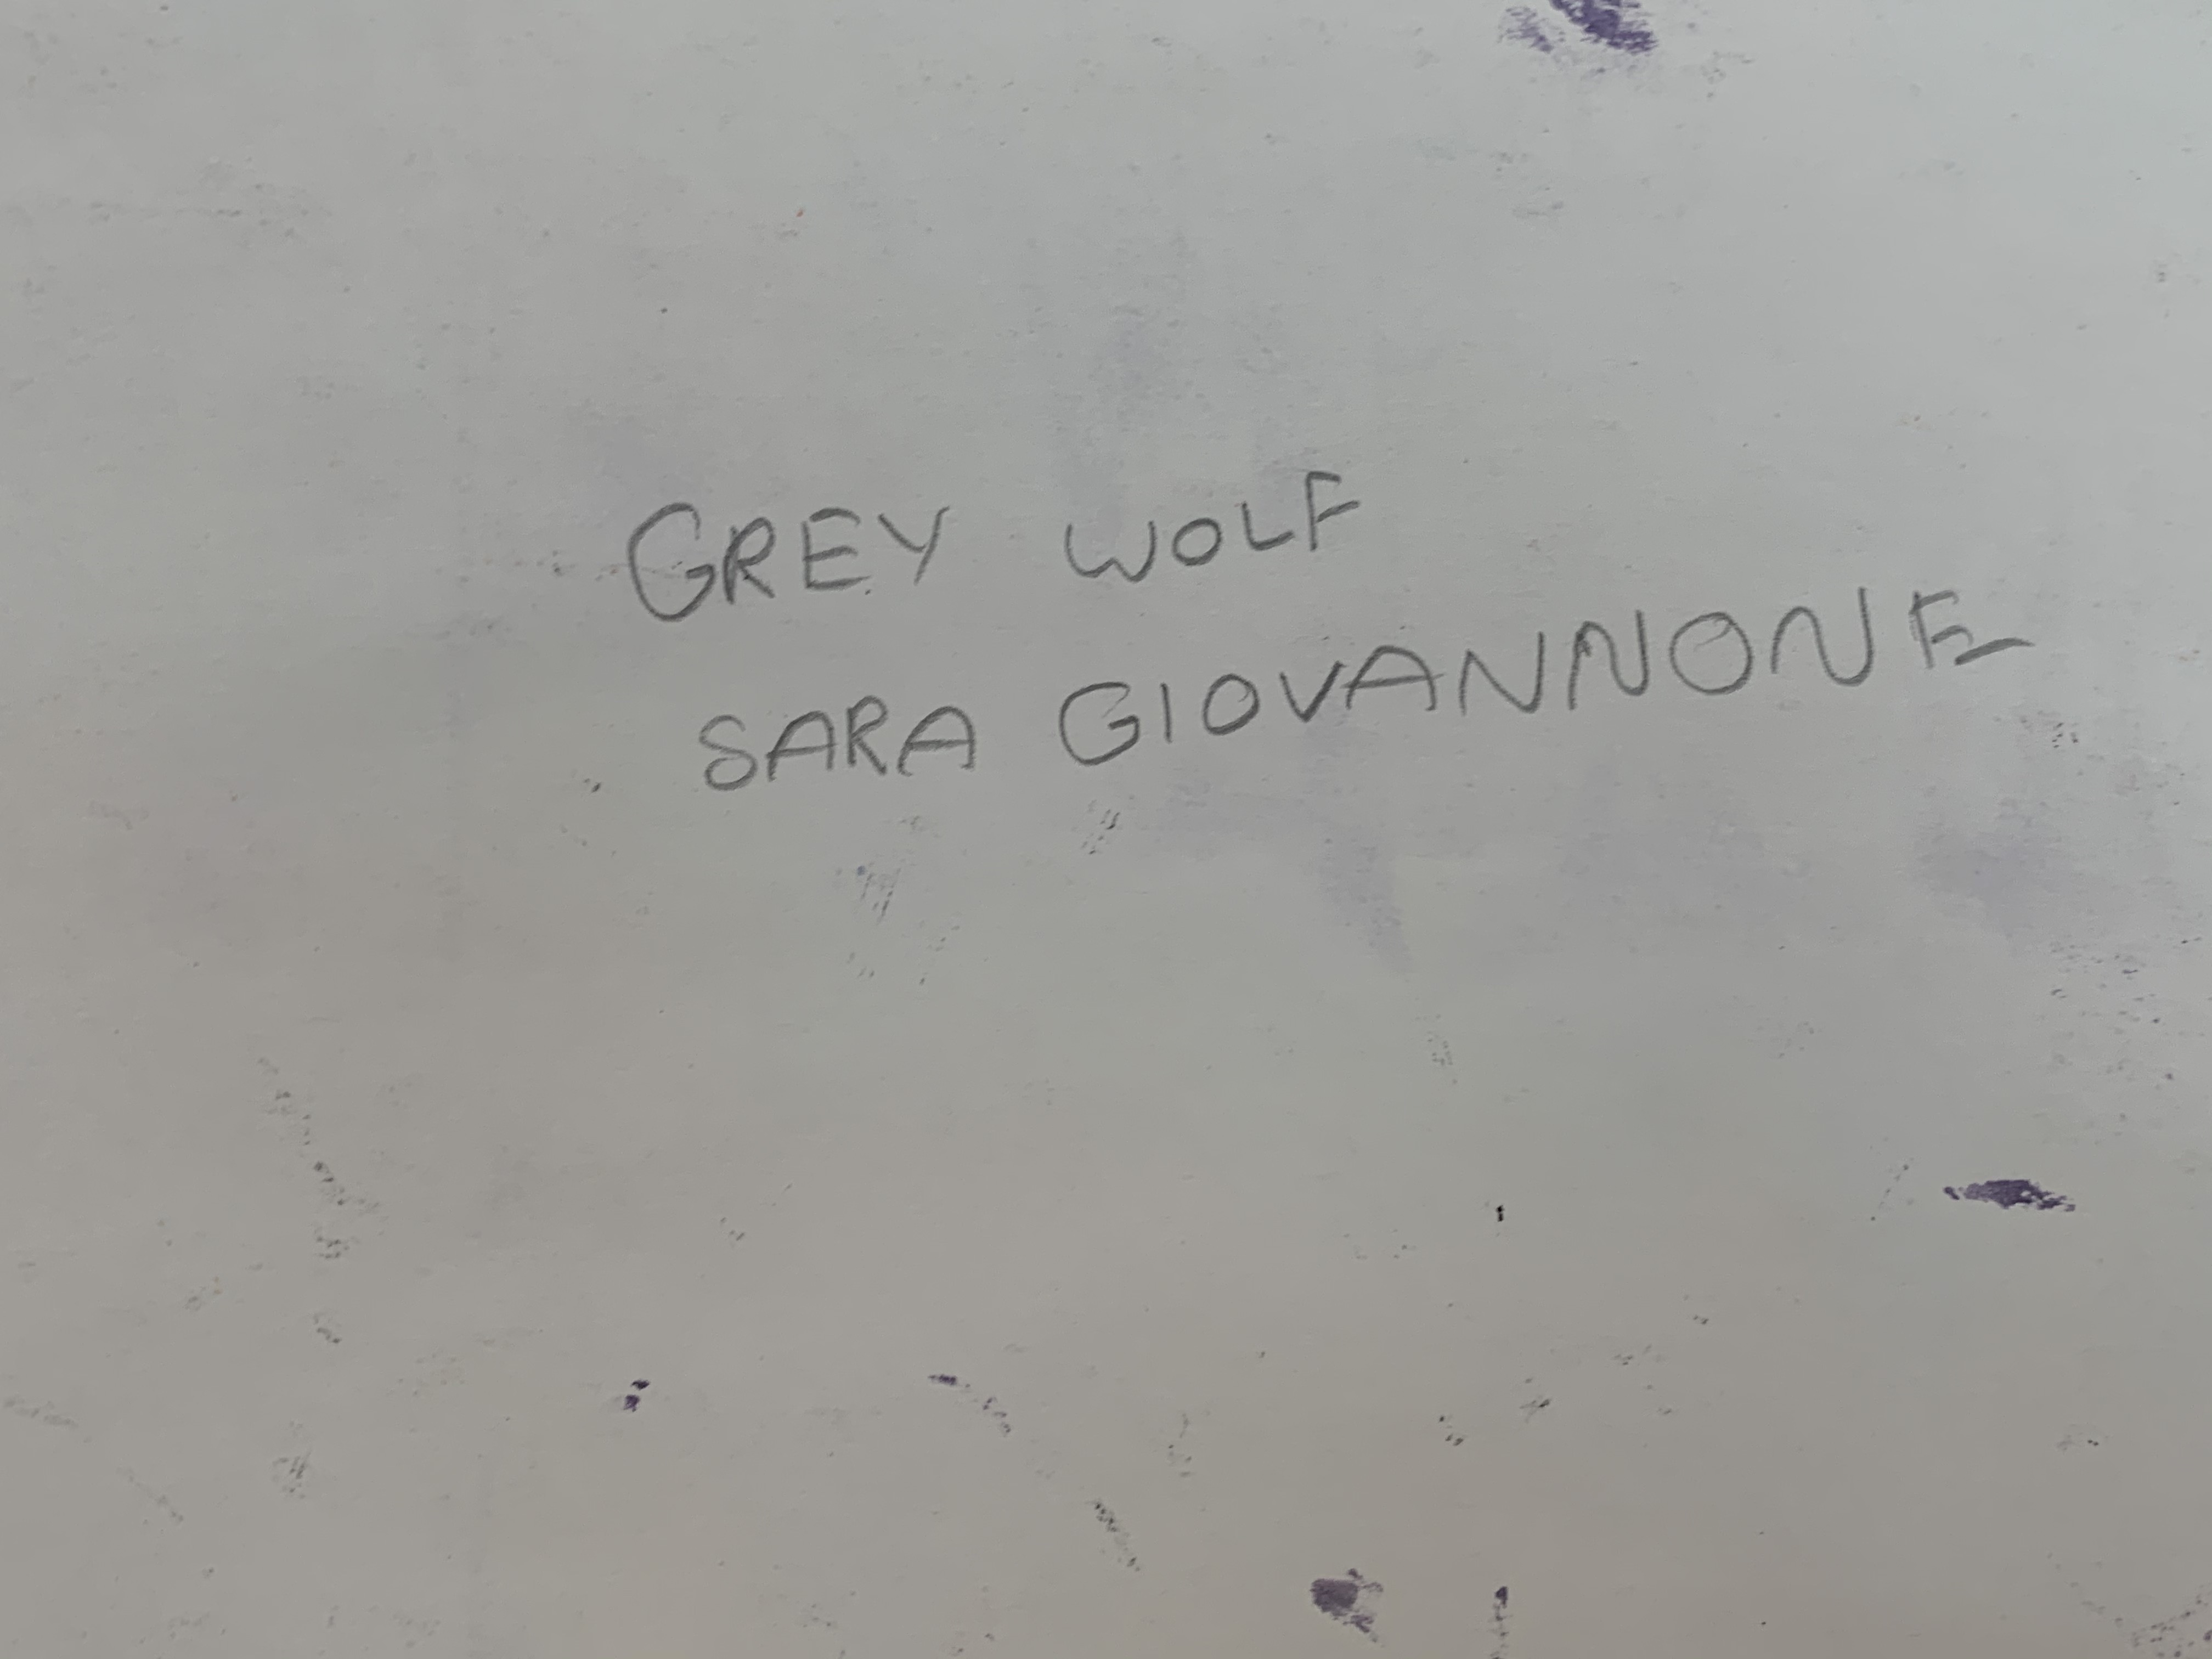 GREY WOLF
SARA GIOVANNONE